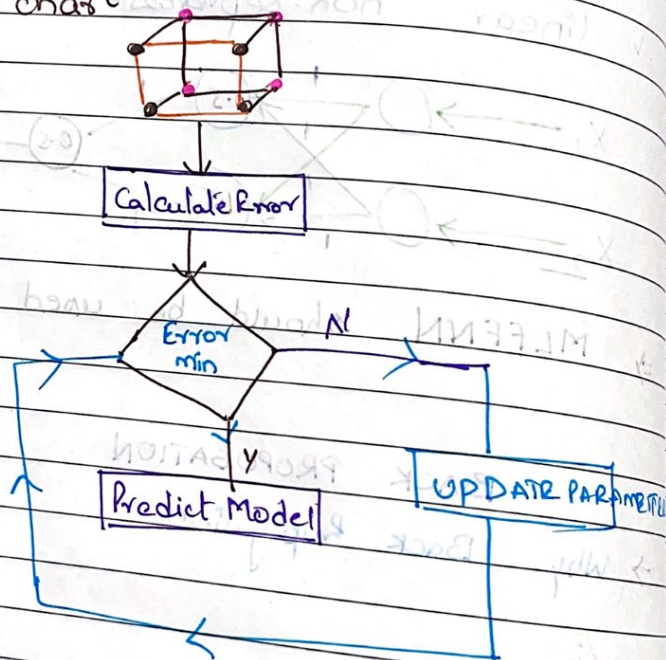 Calculate Error
Error
Min
N
Y
Predict Model
UPDATE PARAMETE